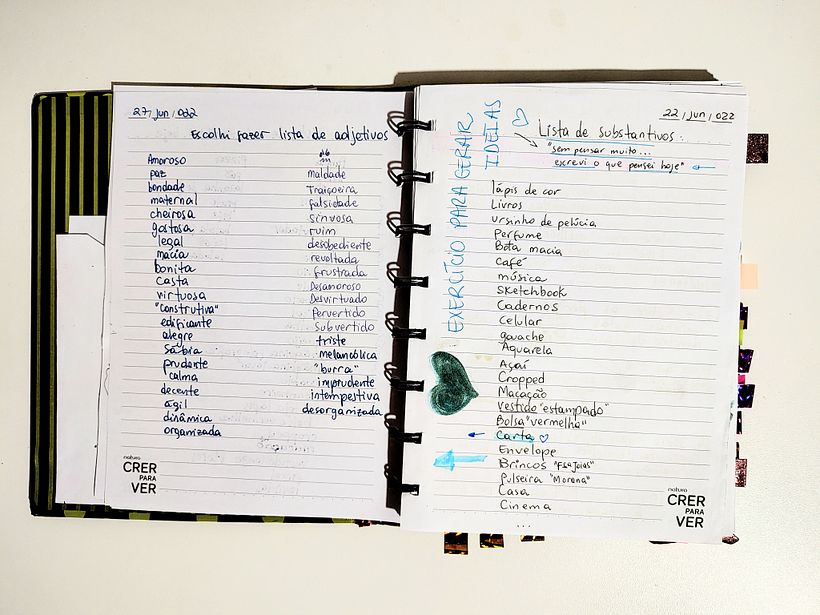 27/Jun/022
Escolhi fazer lista de adjetivos
Amoroso
paz
bondade
maternal
cheirosa
gostosa
legal
macia
bonita
casta
virtuosa
"construtiva"
edificante
alegre
sábia
prudente
calma
decente
ágil
dinâmica
organizada
maldade
Traiçoeira
falsidade
sinuosa
ruim
desobediente
revoltada
frustrada
Desamoroso
Desvirtuado
Pervertido
Subvertido
triste
melancólica
"burra"
imprudente
intempestiva
desorganizada
natura
CRER
PARA
VER
22/Jun/022
EXERCÍCIO PARA GERAR
IDEIAS
Lista de substantivos:
"sem pensar muito...
escrevi o que pensei hoje"
lápis de cor
Livros
ursinho de pelúcia
Perfume
Bota macia
café
música
Sketchbook
Cadernos
Celular
guache
Aquarela
Açaí
Cropped
Macacão
Vestido "estampado"
Bolsa "vermelha"
Carta
Envelope
Brincos
Pulseira "Morana"
Casa
Cinema
...
natura
CRER
PARA
VER